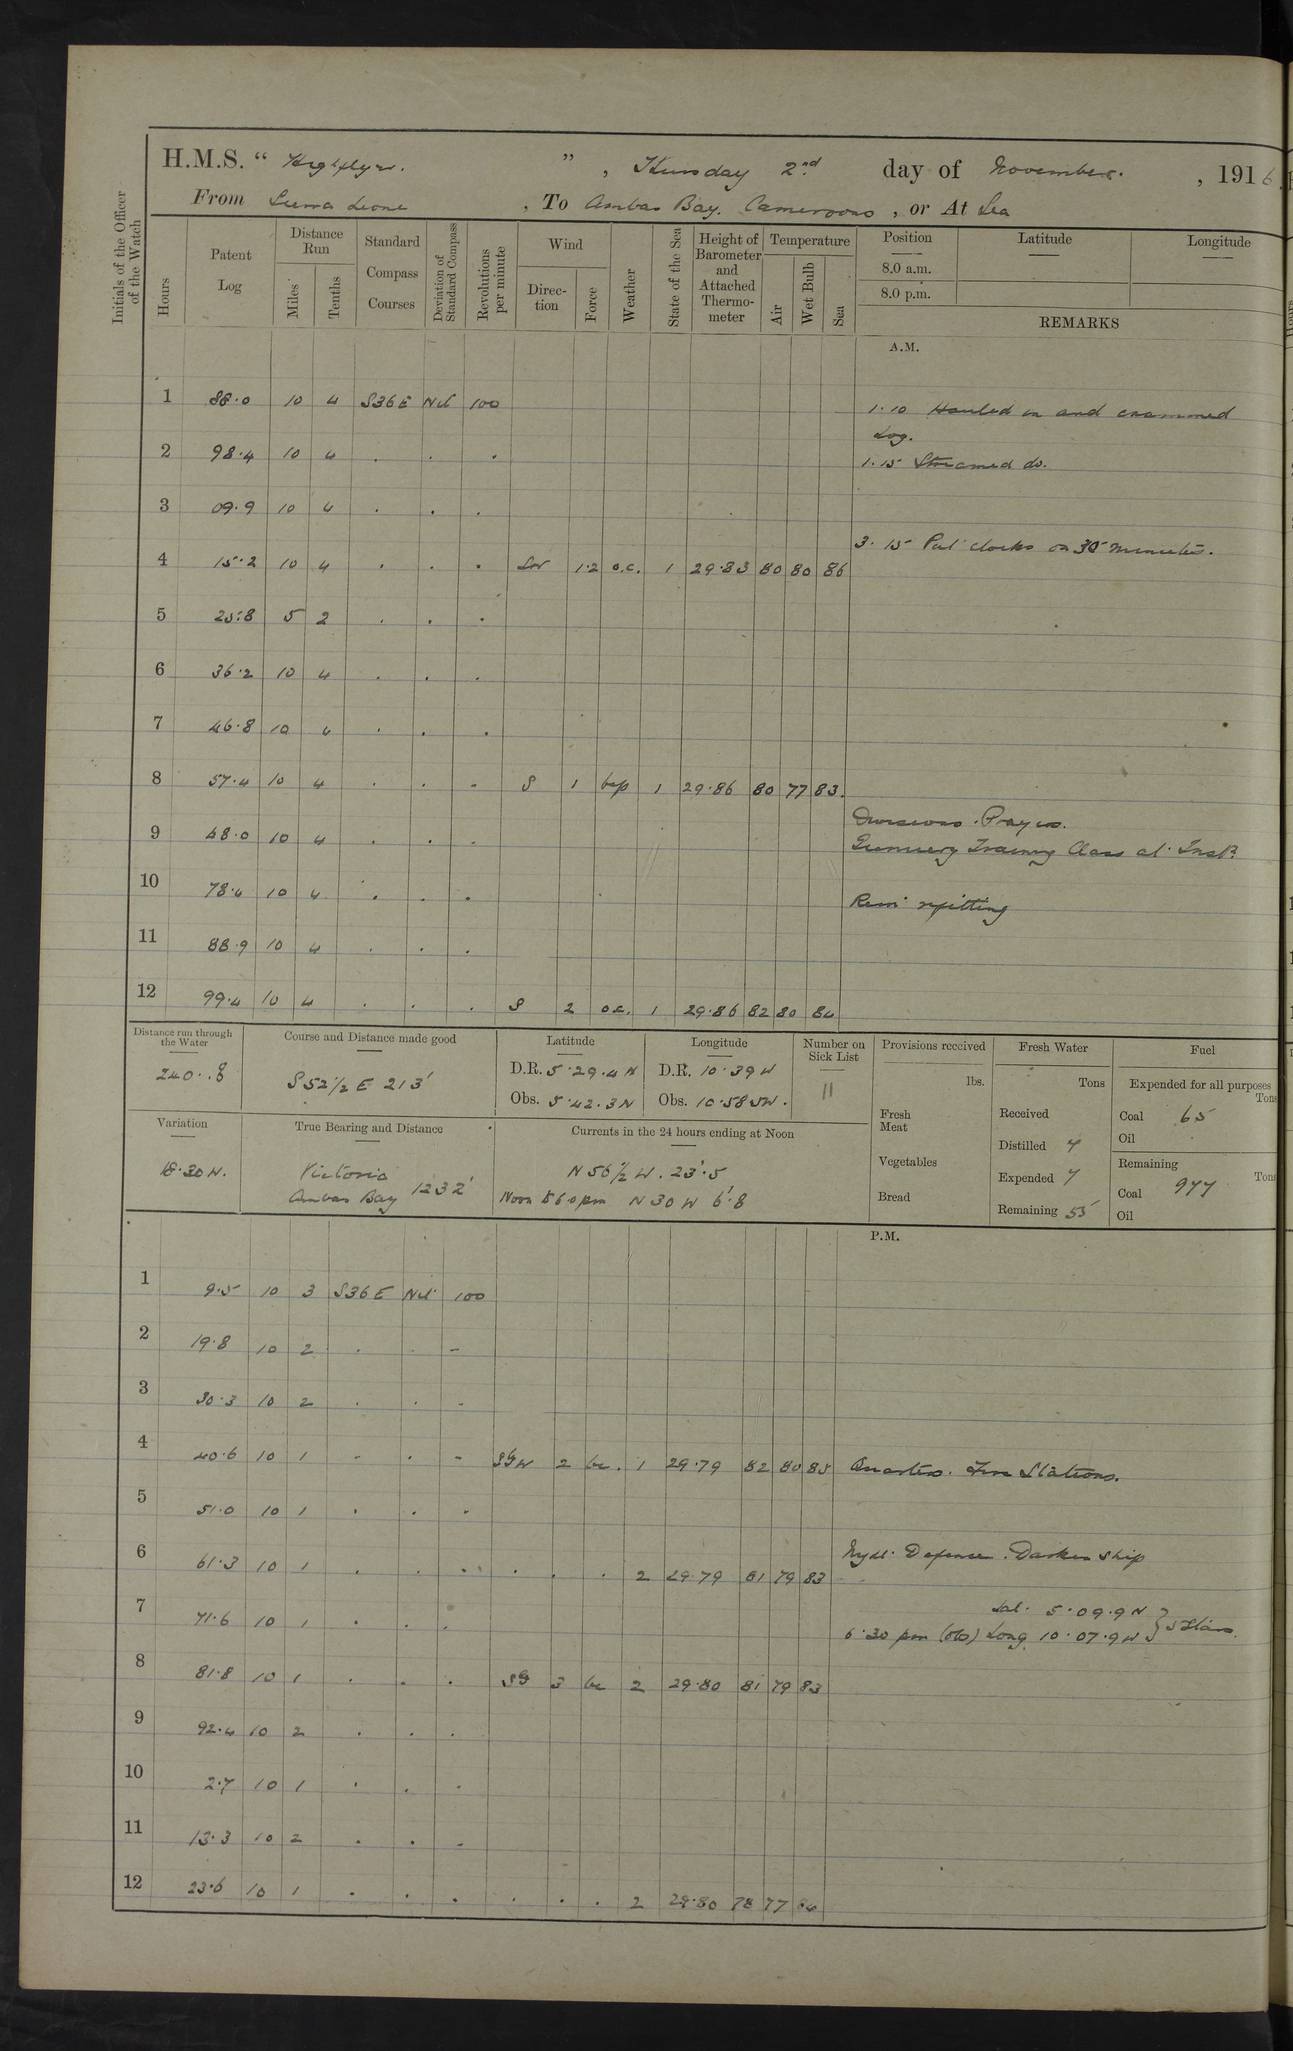 H.M.S. “ Highflyer. ” , Thursday 2nd day of November. , 1916.
From Sierra Leone , To Ambas Bay. Cameroons , or At Sea
Initials of the Officer of the Watch
Hours
Patent Log
Distance Run
Miles
Tenths
Standard Compass Courses
Deviation of Standard Compass
Revolutions per minute
Wind
Direction
Force
Weather
State of the Sea
Height of Barometer and Attached Thermometer
Temperature
Air
Wet Bulb
Sea
Position
Latitude
Longitude
8.0 a.m.
8.0 p.m.
REMARKS
A.M.
1 88.0 10 4 S36E Nil 100
1.10 Hauled in and examined
Log.
2 98.4 10 4 . . .
1.15 Streamed do.
3 09.9 10 4 . . .
3.15 Put clocks on 30 minutes.
4 15.2 10 4 . . . 1.2 o.c. 1 29.83 80 80 86
5 25.8 5 2 . . .
6 36.2 10 4 . . .
7 46.8 10 4 . . .
8 57.4 10 4 . . . S 1 bcp 1 29.86 80 77 83.
Divisions. Prayers.
9 68.0 10 4 . . .
Gunnery Training Class at Instn
10 78.4 10 4 . . .
Remr refitting
11 88.9 10 4 . . .
12 99.4 10 4 . . . S 2 o.c. 1 29.86 82 80 84
Distance run through the Water
240.8
Course and Distance made good
S52½E 213'
Latitude
D.R. 5.29.4 N
Obs. 5.42.3 N
Longitude
D.R. 10.39 W
Obs. 10.58.5W.
Number on Sick List
11
Provisions received
lbs.
Fresh Meat
Vegetables
Bread
Fresh Water
Tons
Received
Distilled 7
Expended 7
Remaining 55
Fuel
Expended for all purposes
Tons
Coal 65
Oil
Remaining
Tons
Coal 977
Oil
Variation
18.30W.
True Bearing and Distance
Victoria
Ambas Bay 1232'
Currents in the 24 hours ending at Noon
N56½W. 23'.5
Noon to 6.0pm N30W 6'.8
P.M.
1 9.5 10 3 S36E Nil 100
2 19.8 10 2 . . -
3 30.3 10 2 . . -
4 40.6 10 1 - . - SbW 2 bc. 1 29.79 82 80 85 Quarters. Fire Stations.
5 51.0 10 1 . . .
6 61.3 10 1 . . . . . . 2 29.79 81 79 83
Night Defence. Darken Ship
7 71.6 10 1 . . .
Lat. 5.09.9N
6.30 pm (obs) Long 10.07.9W } 5 Stars.
8 81.8 10 1 . . . 3 bc 2 29.80 81 79 83
9 92.4 10 2 . . .
10 2.7 10 1 . . -
11 13.3 10 2 . . -
12 23.6 10 1 . . . . . . 2 29.80 78 77 84